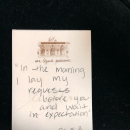 "In the morning
I lay my
requests
before you
and wait
in expectation